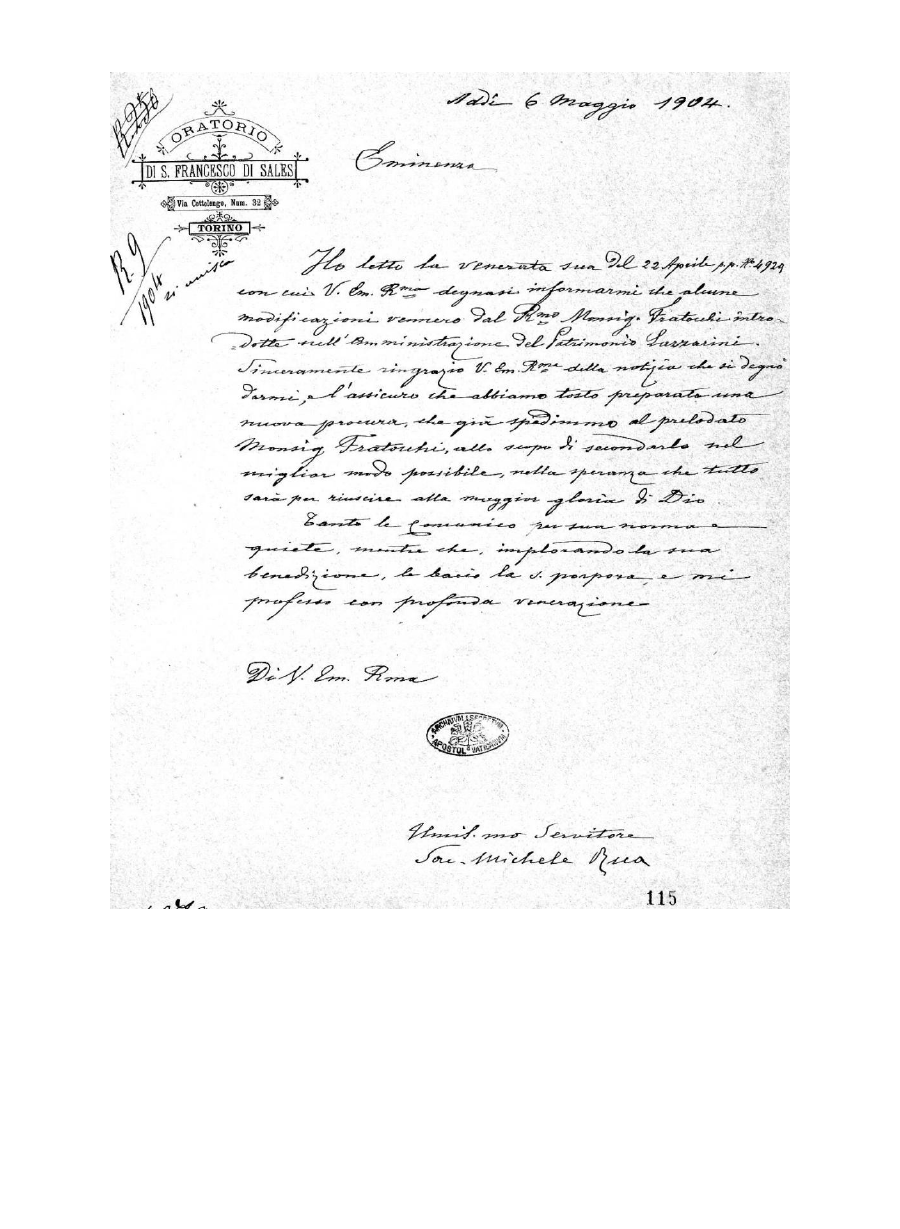 Addì 6 Maggio 1904.
ORATORIO
DI S. FRANCESCO DI SALES
Via Cottolengo, Num. 32
TORINO
Eminenza
R. 9
1904
si unisca
Ho letto la venerata sua del 22 Aprile p.p. N° 4929
con cui V. Em. Rma degnasi informarmi che alcune
modificazioni vennero dal Rmo Monsig. Fratocchi intro-
dotte nell'Amministrazione del Patrimonio Lazzarini.
Sinceramente ringrazio V. Em. Rma della notizia che si degnò
darmi, e l'assicuro che abbiamo tosto preparata una
nuova procura, che già spedimmo al prelodato
Monsig. Fratocchi, allo scopo di secondarlo nel
miglior modo possibile, nella speranza che tutto
sarà per riuscire alla maggior gloria di Dio.
Tanto le comunico per sua norma e
quiete, mentre che, implorando la sua
benedizione, le bacio la s. porpora, e mi
professo con profonda venerazione
Di V. Em. Rma
ARCHIVUM SECRETUM
APOSTOL. VATICANUM
Umil.mo Servitore
Sac. Michele Rua
115